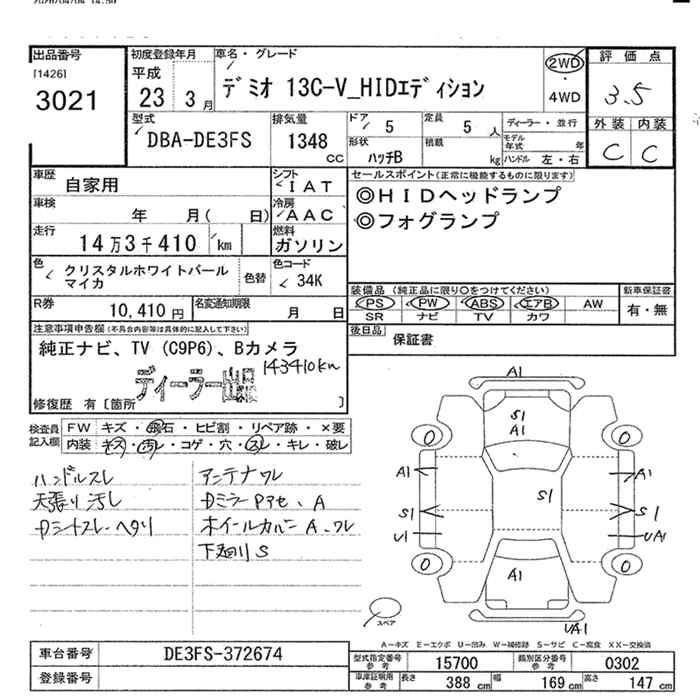 出品番号
[1426]
3021
初度登録年月
平成
23 3月
車名・グレード
デミオ 13C-V_HIDエディション
2WD
・
4WD
評価点
3.5
外装 内装
C C
型式
DBA-DE3FS
排気量
1348
CC
ドア
5
形状
ハッチB
定員
5人
積載
kg
ディーラー・並行
モデル年式 年
ハンドル 左・右
車歴
自家用
シフト
IAT
車検
年 月( 日)
冷房
AAC
走行
14万3千410 km
燃料
ガソリン
色
クリスタルホワイトパール
マイカ
色替
色コード
34K
R券
10,410円
名変通知期限
月 日
セールスポイント(正常に機能するものに限ります)
◎HIDヘッドランプ
◎フォグランプ
装備品 (純正品に限り○をつけてください)
PS PW ABS エアB AW
SR ナビ TV カワ
新車保証書
有・無
後日品
保証書
注意事項申告欄(不具合内容等は具体的に記入して下さい)
純正ナビ、TV (C9P6)、Bカメラ
143410km
ディーラー出品
修復歴 有〔箇所 〕
検査員記入欄
FW キズ・飛石・ヒビ割・リペア跡・×要
内装 キズ・汚レ・コゲ・穴・スレ・キレ・破レ
ハンドルスレ
天張り汚レ
Dシートスレ・ヘタリ
アンテナワレ
DミラーPアセ、A
ホイールカバーA、ワレ
下廻りS
A1
S1
A1
0
0
A1
A1
S1
S1
S1
U1
UA1
0
0
A1
UA1
スペア
A-キズ E-エクボ U-凹み W-補修跡 S-サビ C-腐食 XX-交換済
車台番号
DE3FS-372674
登録番号
型式指定番号参考
15700
類別区分番号参考
0302
車庫証明用参考
長さ 388cm 幅 169cm 高さ 147cm